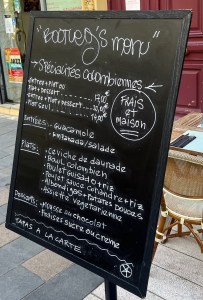 "Boctuey's menu"
→ Spécialités colombiennes ←
Entrée + plat ou
Plat + dessert
Entrée + plat + dessert
Plat seul
14,00
FRAIS
et
maison
ENTRÉES: • Guacamole
• Empanada/salade
PLATS: • Ceviche de daurade
• Bowl colombien
• Poulet guisado + riz
• Poulet sauce coriandre + riz
• Albondigas + patates douces
• Assiette végétarienne
DESSERTS: • Mousse au chocolat
• Fraises sucre ou creme
TAPAS A LA CARTE